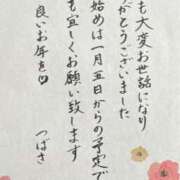 も大変お世話になり
がとうございました
始めは一月五日からの予定で
も宜しくお願い致します
良いお年を♡
つばさ